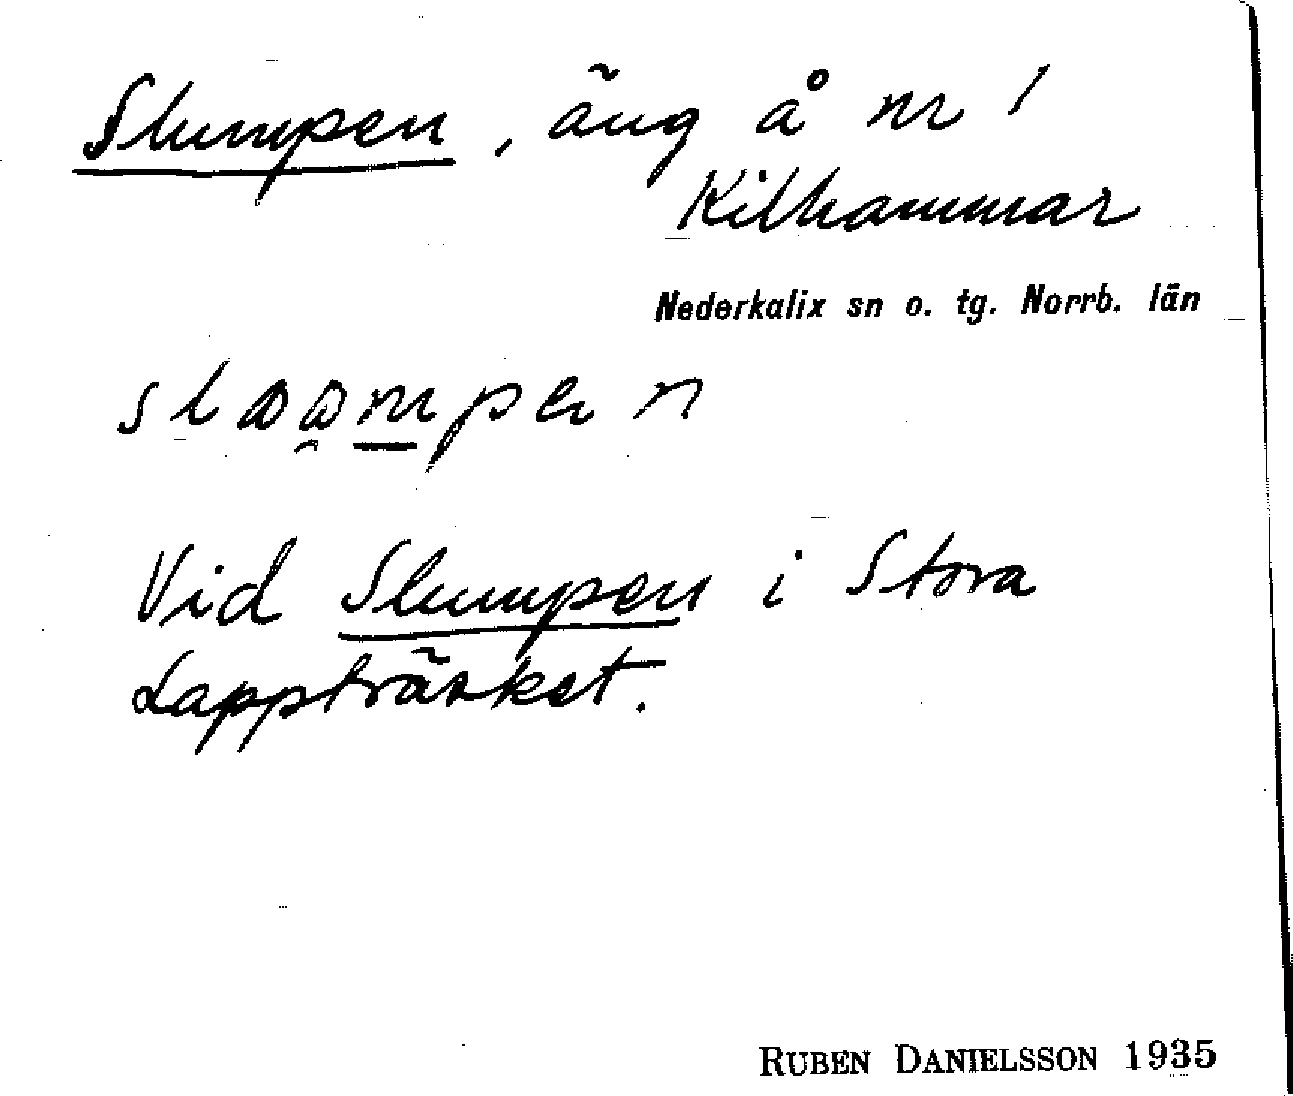 Slumpen, äng å nr 1
Kilhammar
Nederkalix sn o. tg. Norrb. län
Vid Slumpen i Stora
Lappträsket.
RUBEN DANIELSSON 1935